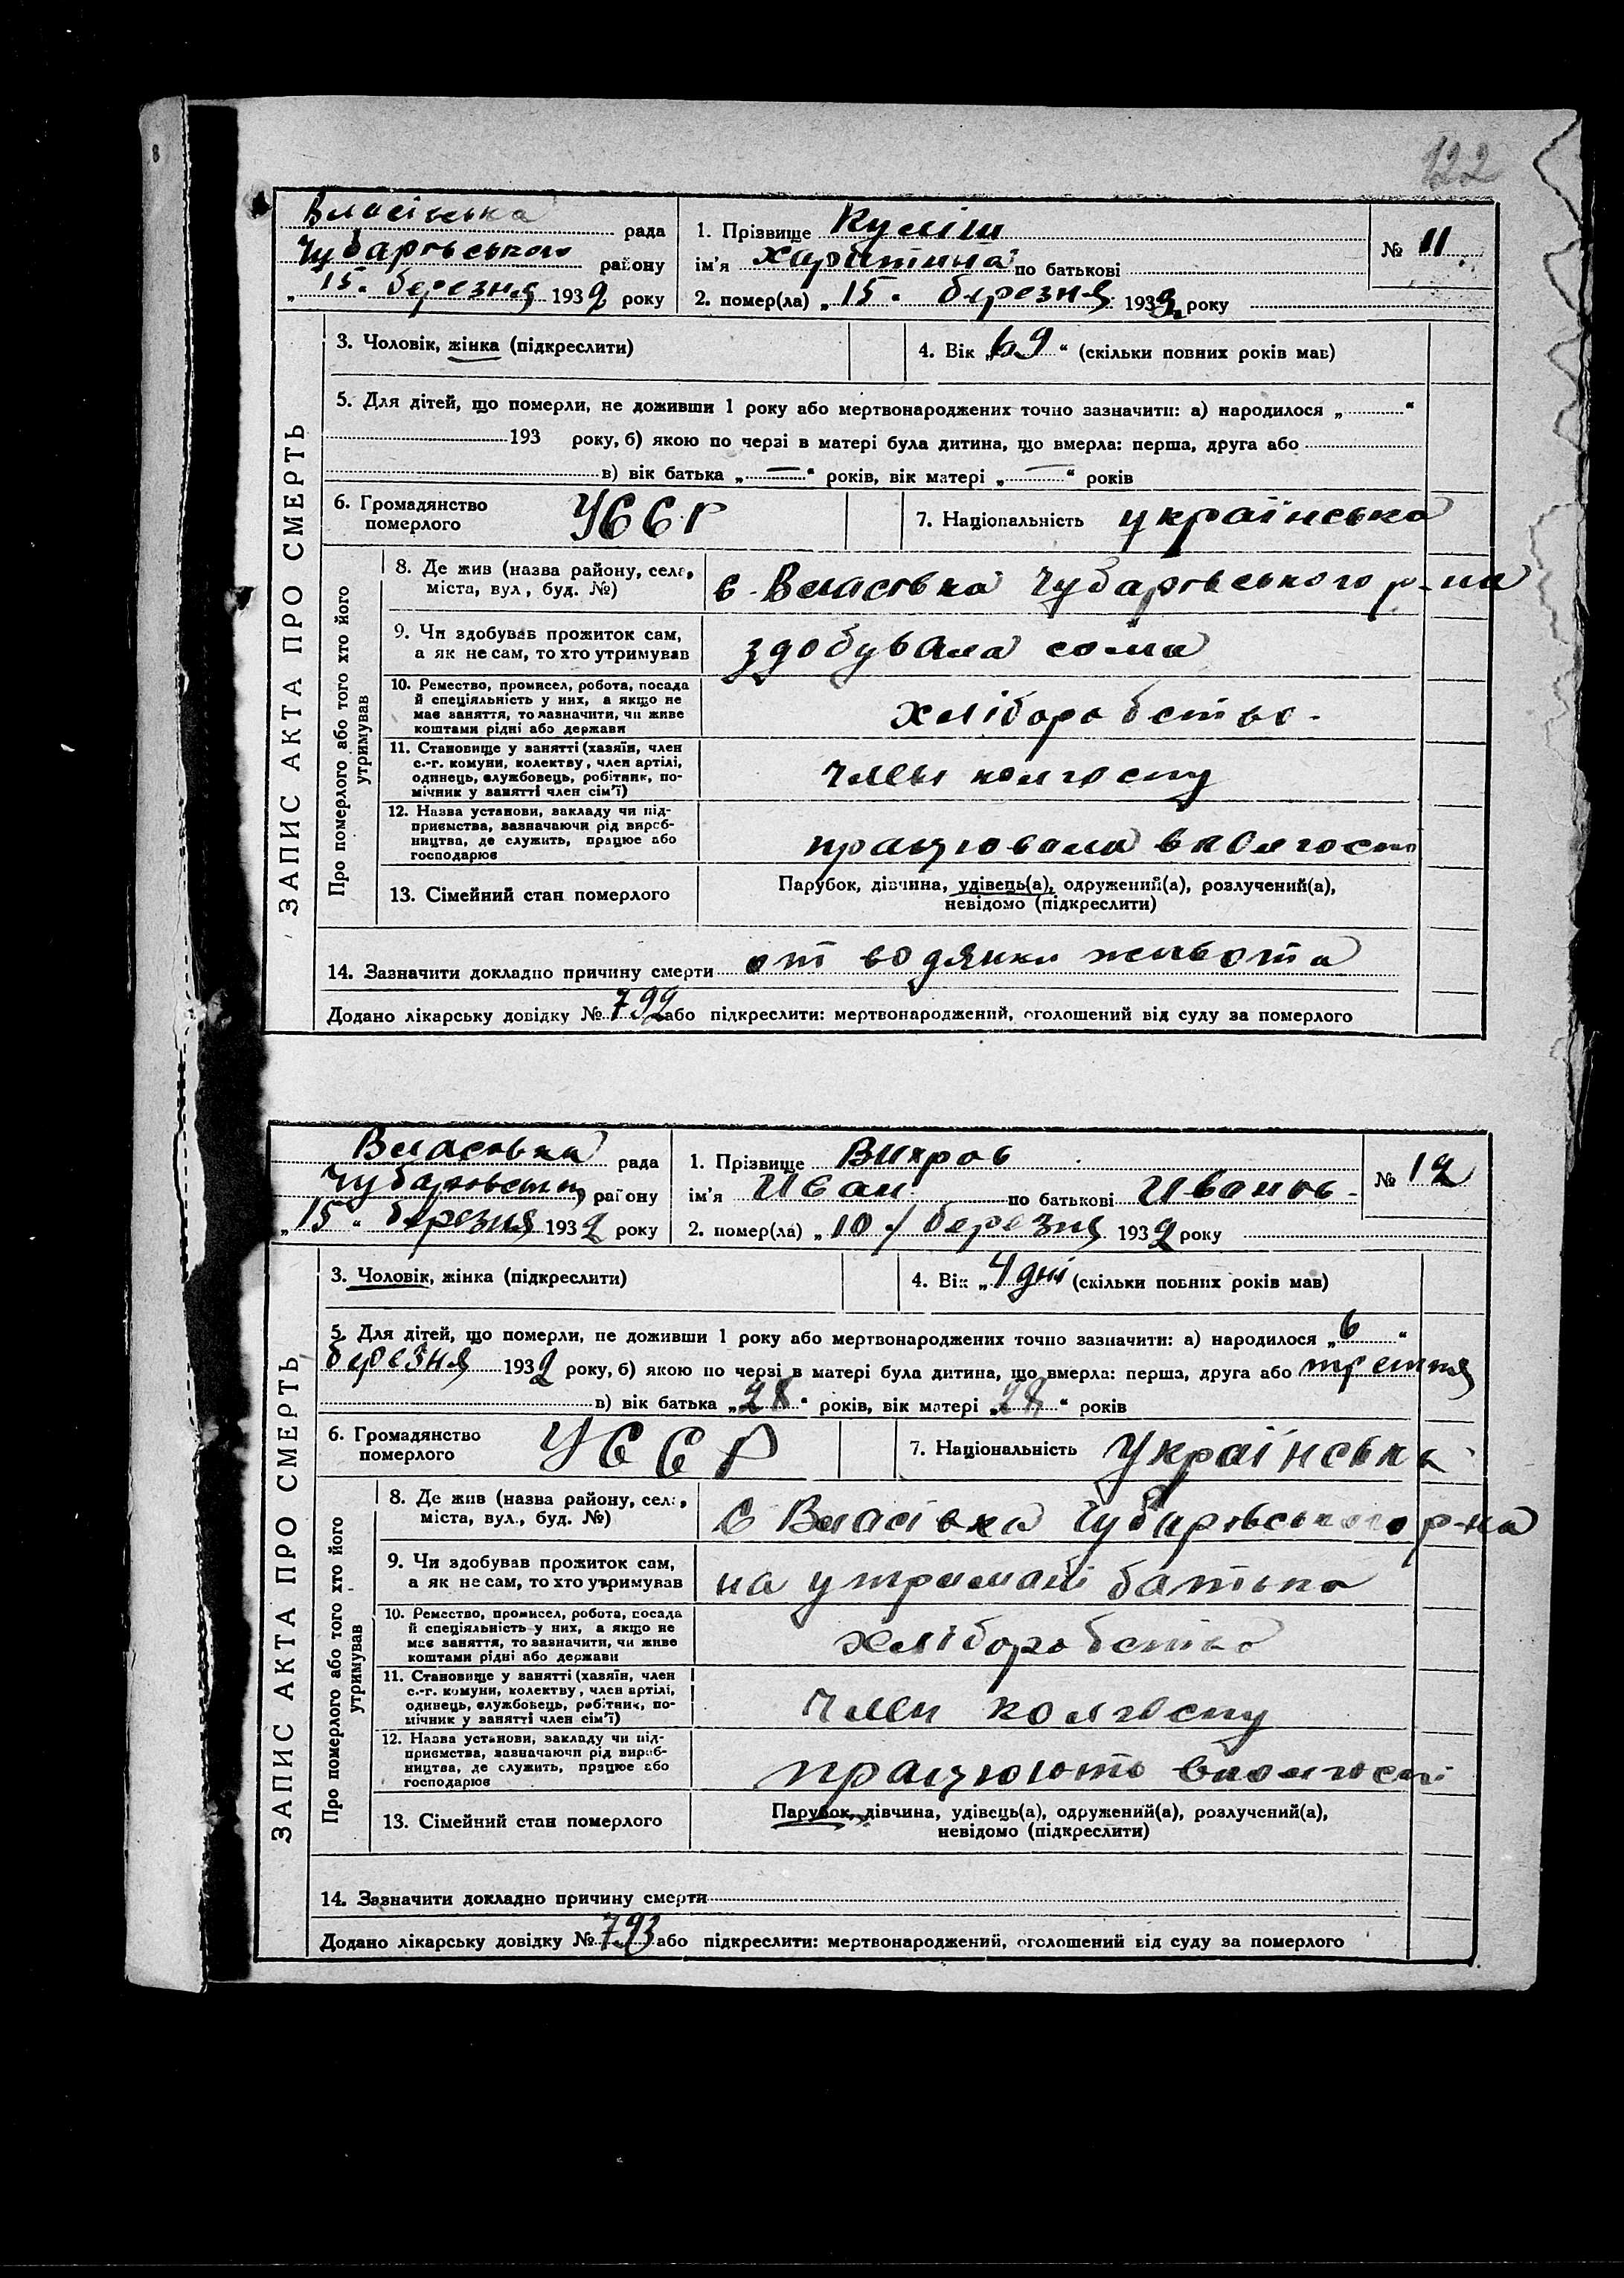 8
122
Власівська рада
Чубаровського району
„15“ березня 1932 року
1. Прізвище Куліш
ім’я Харитина по батькові
2. помер(ла) „15“ березня 1932 року
№ 11.
ЗАПИС АКТА ПРО СМЕРТЬ
3. Чоловік, жінка (підкреслити)
4. Вік „69“ (скільки повних років мав)
5. Для дітей, що померли, не доживши 1 року або мертвонароджених точно зазначити: а) народилося „ “
193 року, б) якою по черзі в матері була дитина, що вмерла: перша, друга або
в) вік батька „—“ років, вік матері „—“ років
6. Громадянство
померлого
УССР
7. Національність українська
Про померлого або того хто його
утримував
8. Де жив (назва району, села,
міста, вул., буд. №)
с. Власовка Чубаровського р-на
9. Чи здобував прожиток сам,
а як не сам, то хто утримував
здобувала сама
10. Ремество, промисел, робота, посада
й спеціяльність у них, а якщо не
має заняття, то зазначити, чи живе
коштами рідні або держави
хліборобство.
11. Становище у занятті (хазяїн, член
с.-г. комуни, колективу, член артілі,
одинець, службовець, робітник, по-
мічник у занятті член сім’ї)
член колгоспу
12. Назва установи, закладу чи під-
приємства, зазначаючи рід вироб-
ництва, де служить, працює або
господарює
працювала в колгоспі
13. Сімейний стан померлого
Парубок, дівчина, удівець(а), одружений(а), розлучений(а),
невідомо (підкреслити)
14. Зазначити докладно причину смерти от водянки живота
Додано лікарську довідку № 792 або підкреслити: мертвонароджений, оголошений від суду за померлого
Власовка рада
Чубаровського району
„15“ березня 1932 року
1. Прізвище Вихров
ім’я Иван по батькові Иванов.
2. помер(ла) „10“ березня 1932 року
№ 12
ЗАПИС АКТА ПРО СМЕРТЬ
3. Чоловік, жінка (підкреслити)
4. Вік „4 дні (скільки повних років мав)
5. Для дітей, що померли, не доживши 1 року або мертвонароджених точно зазначити: а) народилося „6“
березня 1932 року, б) якою по черзі в матері була дитина, що вмерла: перша, друга або третя
в) вік батька „28“ років, вік матері „28“ років
6. Громадянство
померлого
УССР
7. Національність Українська
Про померлого або того хто його
утримував
8. Де жив (назва району, села,
міста, вул., буд. №)
с Власівка Чубаровського р-на
9. Чи здобував прожиток сам,
а як не сам, то хто утримував
на утримані батька
10. Ремество, промисел, робота, посада
й спеціяльність у них, а якщо не
має заняття, то зазначити, чи живе
коштами рідні або держави
хліборобство
11. Становище у занятті (хазяїн, член
с.-г. комуни, колективу, член артілі,
одинець, службовець, робітник, по-
мічник у занятті член сім’ї)
член колгоспу
12. Назва установи, закладу чи під-
приємства, зазначаючи рід вироб-
ництва, де служить, працює або
господарює
працюють в колгоспі
13. Сімейний стан померлого
Парубок, дівчина, удівець(а), одружений(а), розлучений(а),
невідомо (підкреслити)
14. Зазначити докладно причину смерти
Додано лікарську довідку № 793 або підкреслити: мертвонароджений, оголошений від суду за померлого